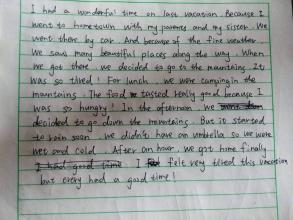 I had a wonderful time on last vacation. Because I
went to hometown with my parents and my sister. We
went there by car. And because of the fine weather.
We saw many beautiful places along the way. When
we got there, we decided to go to the mountains. It
was so tired! For lunch, we were camping in the
mountains. The food tasted really good because I
was so hungry! In the afternoon, we
decided to go down the mountains. But it started
to rain soon. We didn't have an umbrella so we were
wet and cold. After an hour, we got home finally
I had good time. I felt very tired this vacation,
but every had a good time!